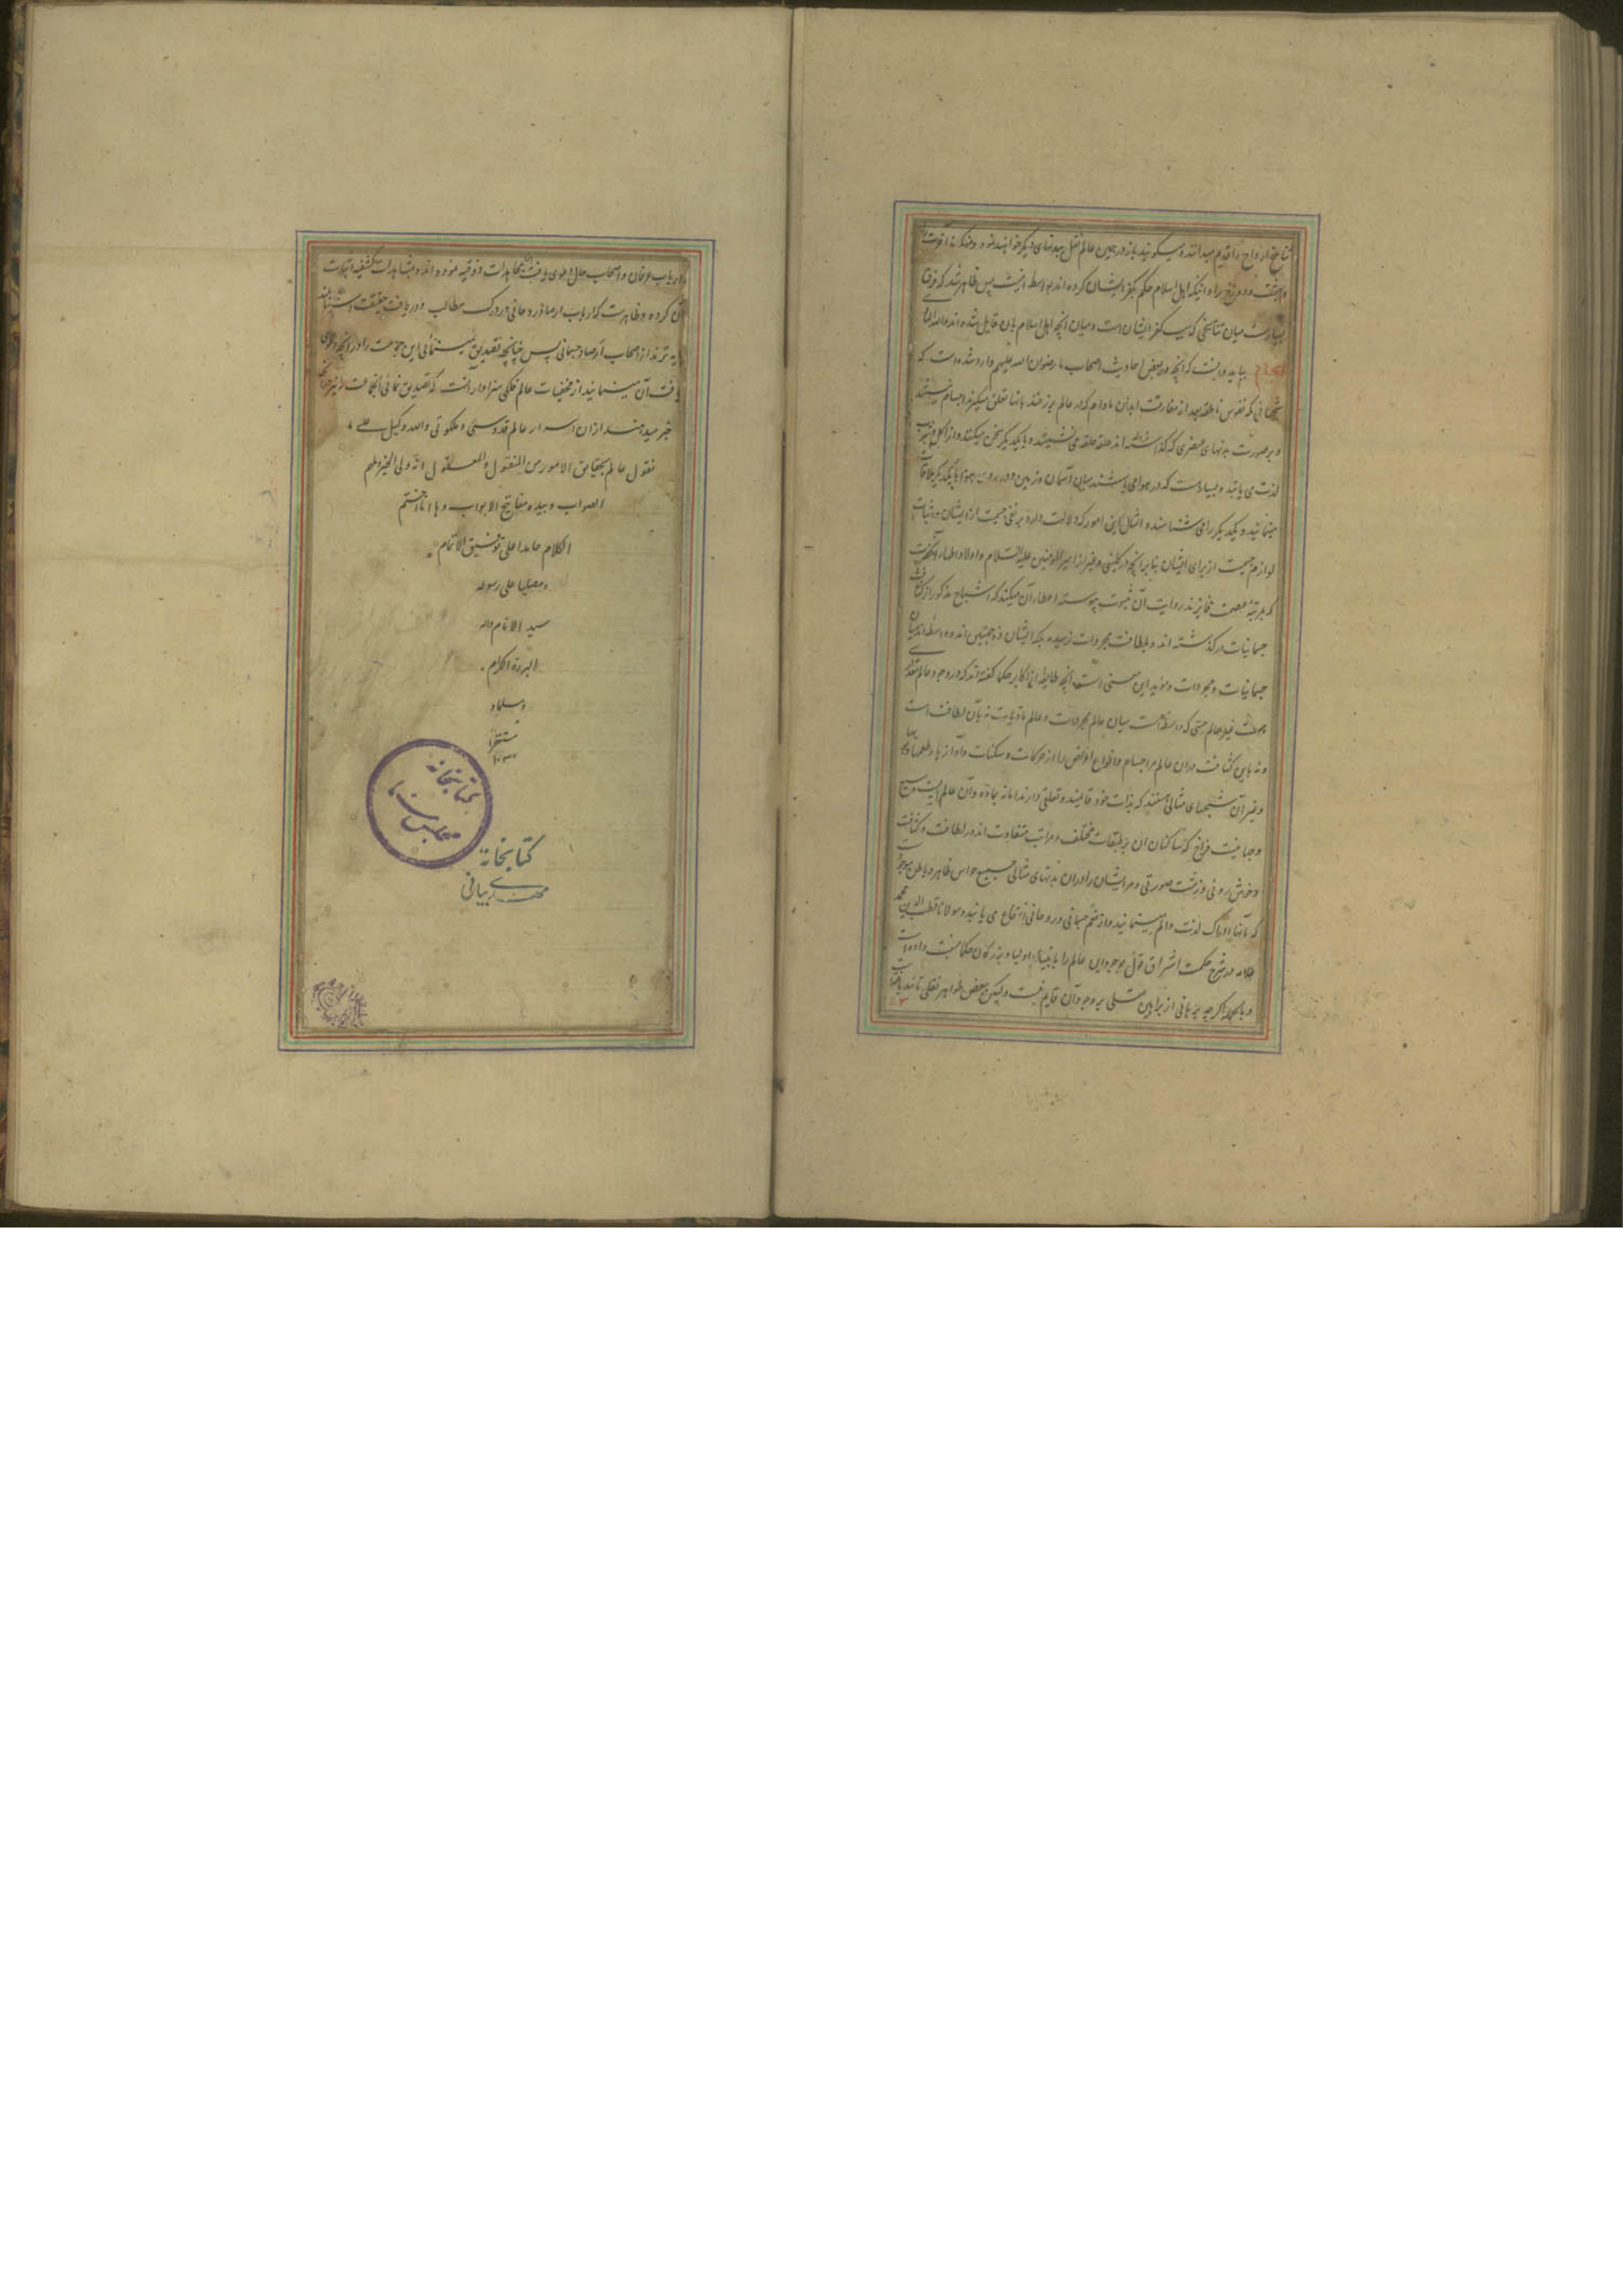 تناسخ ارواح را قدیم میدانند و میگویند باز در همین عالم نقل ببدنهای دیگر خواهند نمود و منکرند آخرت را
و بهشت و دوزخ را و اینکه اهل اسلام حکم بکفر ایشان کرده اند بواسطه اینست پس ظاهر شد که فرق
بسیارست میان تناسخی که سبب کفر ایشان است و میان آنچه اهل اسلام بان قایل شده اند والله
بباید دانست که آنچه در بعض احادیث اصحاب ما رضوان الله علیهم وارد شده است که
شبحهائی که نفوس ناطقه بعد از مفارقت ابدان مادام که در عالم برزخند بانها تعلق میگیرند اجسام نیستند
و بر صورت بدنهای عنصری که گذاشته اند حلقه حلقه می نشینند و با یکدیگر سخن میکنند و از اکل و شرب
لذت می یابند و بسیارست که در هوا می باشند میان آسمان و زمین و در روی هوا با یکدیگر ملاقات
مینمایند و یکدیگر را می شناسند و امثال این امور که دلالت دارد بر نفی جسمیت از ایشان و اثبات
لوازم جسمیت از برای ایشان بنابر آنچه در کلینی و غیر از امیر المومنین علیه السلام و اولاد اطهار آنحضرت
که بمرتبهٔ عصمت فایزند روایت آن ثبوت پیوسته اعطا آن میکند که اشباح مذکور از کثافت
جسمانیات درگذشته اند و بلطافت مجردات نرسیده بلکه ایشان ذو جهتین اند و واسطه اند میان
جسمانیات و مجردات و موید این معنی است آنچه طایفه از اکابر حکما گفته اند که در وجود عالم مقداری
هست غیر عالم حسی که واسطه است میان عالم مجردات و عالم مادیات نه بآن لطافت است
و نه باین کثافت دران عالم مر اجسام و انواع اعراض را از حرکات و سکنات و آوازها و طعمها و بویها
و غیر آن شبحهای مثالی هستند که بذات خود قایمند و تعلقی دارند اما نه بماده و آن عالمیست وسیع
و جائیست فراخ که ساکنان آن بر طبقات مختلف و مراتب متفاوت اند در لطافت و کثافت
و خوش روئی و زشت صورتی و مر ایشان را دران بدنهای مثالی جمیع حواس ظاهر و باطن موجود است
که بآنها ادراک لذت و الم مینمایند و از نعم جسمانی و روحانی انتفاع می یابند و مولانا قطب الدین محمد
علامه در شرح حکمت اشراق قول بوجود این عالم را بانبیا و اولیا و بزرگان حکما نسبت داده است
و بالجمله اگر چه برهانی از براهین عقلی بر وجود آن قایم نیست ولیکن ببعض ظواهر نقلی تائید یافته است
و ارباب عرفان و اصحاب حال دعوی یافت بمجاهدات ذوقیه نموده اند و بمشاهدات کشفیه اثبات
آن کرده و ظاهرست که ارباب ارصاد روحانی در درک مطالب و دریافت حقیقت
تر ند از اصحاب ارصاد جسمانی پس چنانچه تصدیق مینمائی این جماعت را در آنچه دعوی
یافت آن مینمایند از مخفیات عالم فلکی سزاوار انست که تصدیق نمائی آنجماعت را نیز در آنچه
خبر میدهند از ان اسرار عالم قدوسی و ملکوتی والله وکیل علی ما
نقول عالم بحقایق الامور من المنقول والمعقول انه ولی الخیر و ملهم
الصواب و بیده مفاتیح الابواب و ها انا اختم
الکلام حامدا علی توفیق الاتمام
و مصلیا علی رسوله
سید الانام واله
البررة الکرام
و مسلما و
مستغفرا
کتابخانه
کتابخانه
مهدی بیانی